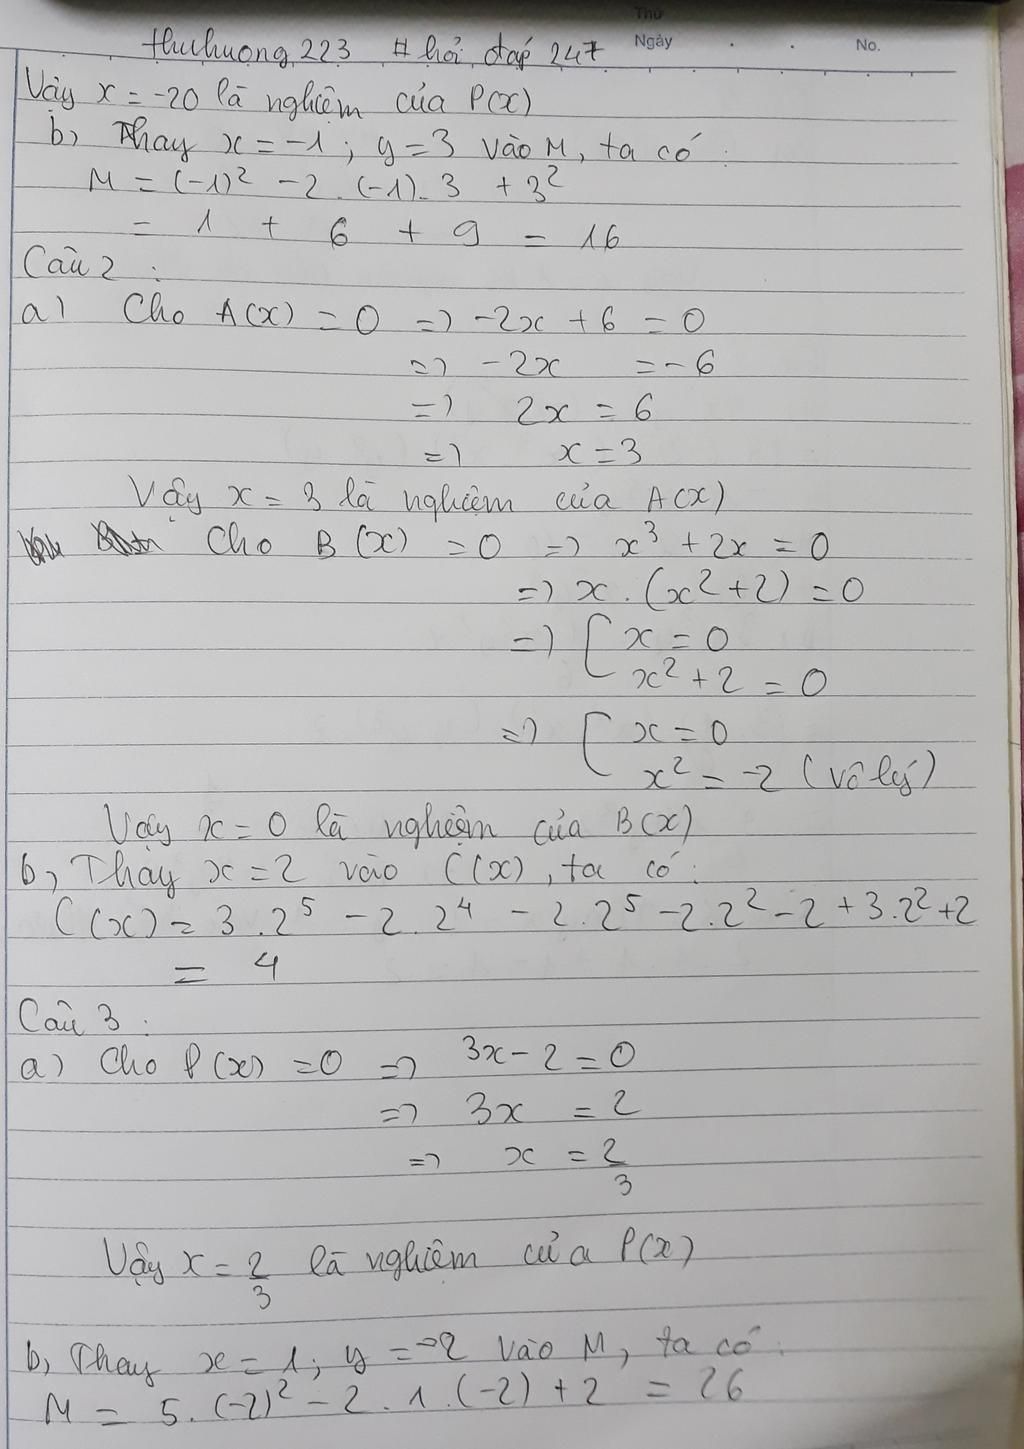 Thứ
Ngày . . No.
thuhuong223 #hỏi đáp 247
Vậy x = -20 là nghiệm của P(x)
b, Thay x = -1 ; y = 3 vào M, ta có :
M = (-1)² - 2 . (-1) . 3 + 3²
= 1 + 6 + 9 = 16
Câu 2 :
a) Cho A(x) = 0 => -2x + 6 = 0
=> -2x = -6
=> 2x = 6
=> x = 3
Vậy x = 3 là nghiệm của A(x)
Cho B(x) = 0 => x³ + 2x = 0
=> x . (x² + 2) = 0
=> [ x = 0
x² + 2 = 0
=> [ x = 0
x² = -2 (vô lý)
Vậy x = 0 là nghiệm của B(x)
b, Thay x = 2 vào C(x), ta có :
C(x) = 3 . 2⁵ - 2 . 2⁴ - 2 . 2⁵ - 2 . 2² - 2 + 3 . 2² + 2
= 4
Câu 3 :
a) Cho P(x) = 0 => 3x - 2 = 0
=> 3x = 2
=> x = 2/3
Vậy x = 2/3 là nghiệm của P(x)
b, Thay x = 1 ; y = -2 vào M, ta có :
M = 5 . (-2)² - 2 . 1 . (-2) + 2 = 26